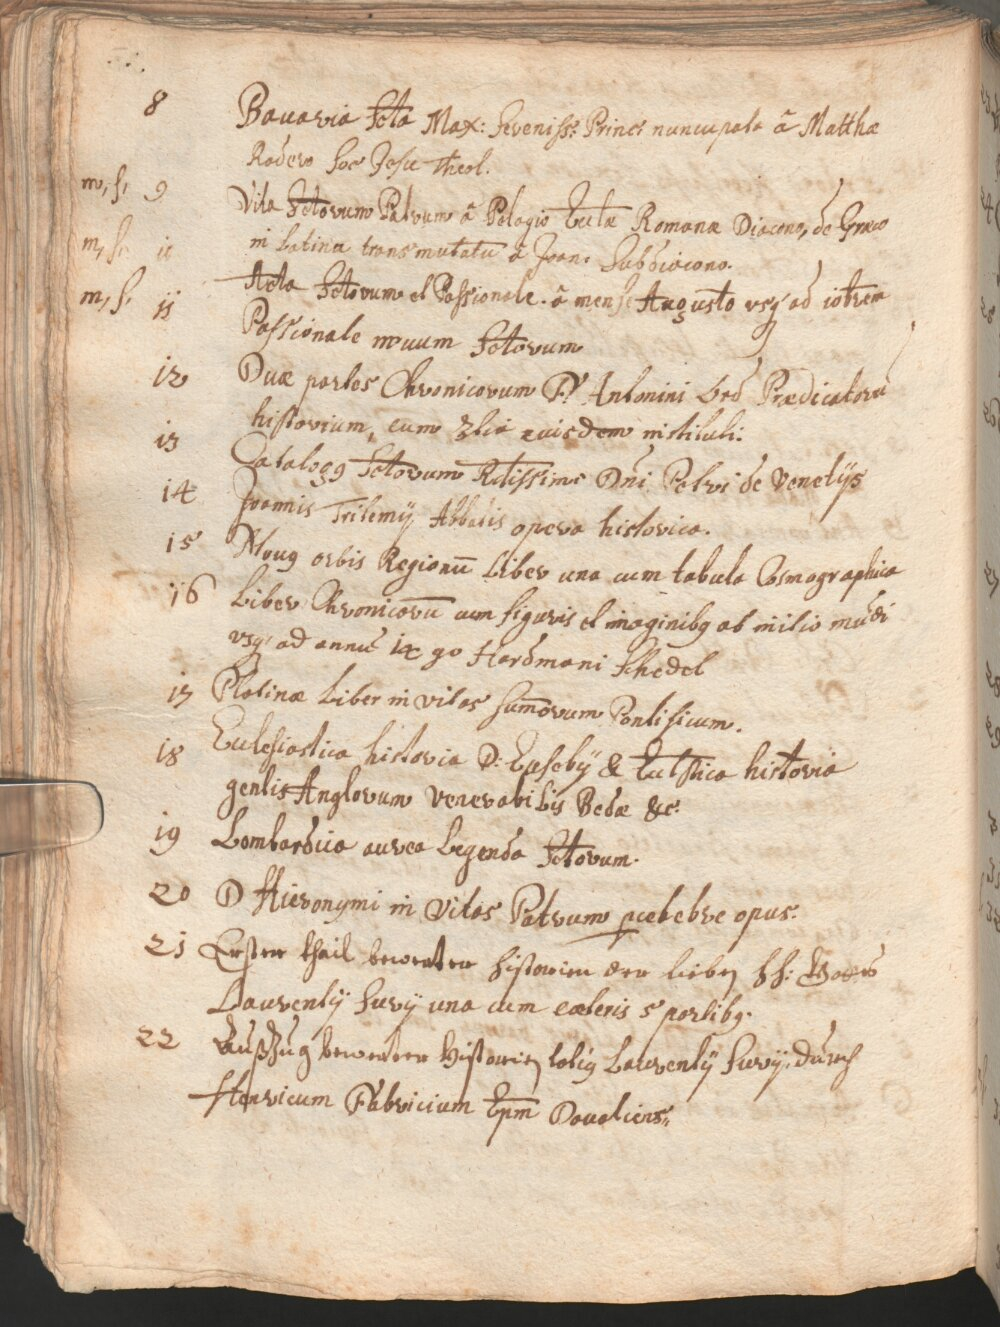 8 Bavaria Scta Max: Sereniss: Princ: nuncupata â Matthæ
Radero Soc Jesu Theol.
m, s, 9 Vita Sctorum Patrum â Pelagio Eccłæ Romanæ Diacono, de Græco
m, s, in Latinu transmutatu â Joan: Subdiacono.
m, s, ij Acta Sctorum et Passionale â mense Augusto usq ad
Passionale nouum Sctorum
12 Duæ partes Chronicorum D: Antonini Ord Prædicatorū
historium, cum eiusdem instituti:
i3 Catalogg Sctorum Rdissimi Dni Petri de Venetijs
i4 Joannis Tritemij Abbatis opera historica.
i5 Noug orbis Regionū Liber una cum tabula Cosmographica
i6 Liber Chronicorū cum figuris et imaginibg ab initio mūdi
usq ad annū i4 90 Hardmani Schedel
i7 Platinæ Liber in vitas sumōrum Pontificum.
i8 Ecclesiastica historia D: Eusebij & Eccłstica historia
gentis Anglorum Venerabilis Bedæ &c:
i9 Lombardica aurea Legenda Sctorum.
20 D Hieronymi in Vitas Patrum pcelebre opus.
2i Erster thail bewerter historien der lieben hh: Gottes
Laurentij Surij una cum cæteris 5 partibg.
22 Außzug bewerter Historien Laurentij Surij, durch
Henricum Fabricium Epm